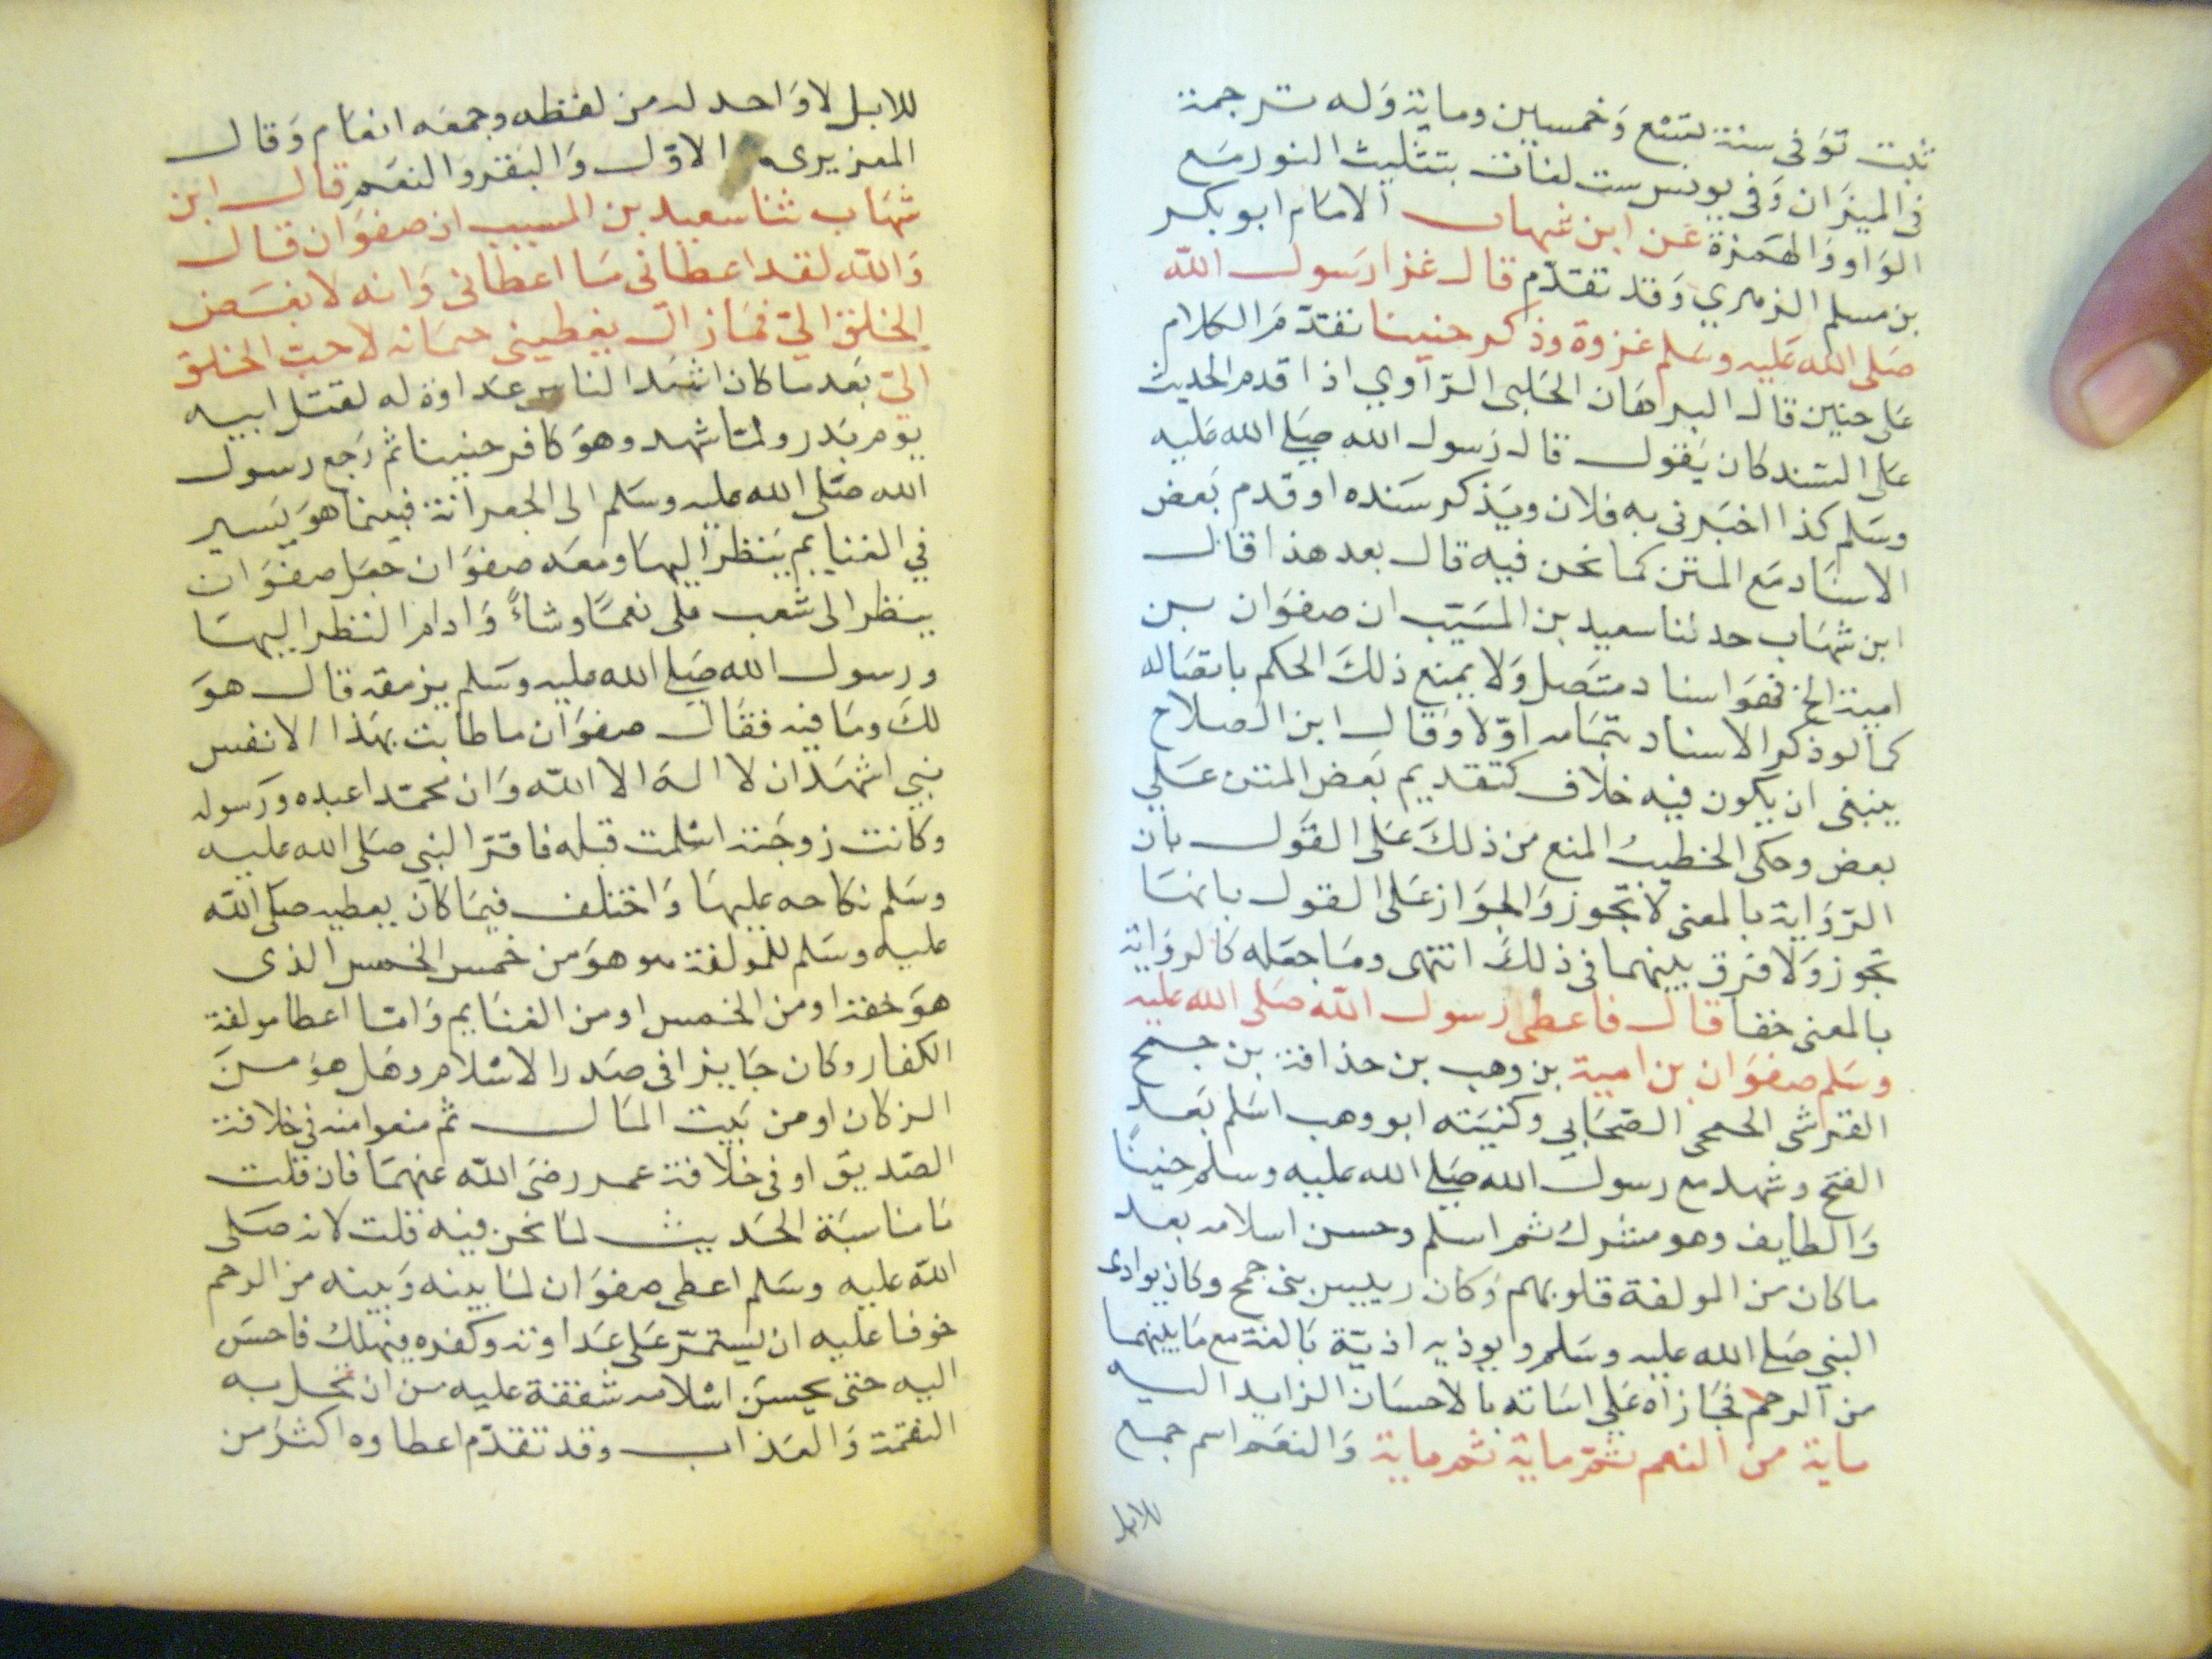 ثبت توفى سنة تسع وخمسين وماية وله ترجمة
فى الميزان وفى يونس ست لغات بتثليث النون مع
الواو والهمزة عن ابن شهاب الامام ابو بكر
بن مسلم الزهري وقد تقدم قال غزا رسول الله
صلى الله عليه وسلم غزوة وذكر حنينا تقدم الكلام
على حنين قال البرهان الحلبى الراوي اذا قدم الحديث
على السند كان يقول قال رسول الله صلى الله عليه
وسلم كذا اخبرنى به فلان ويذكر سنده او قدم بعض
الاسناد مع المتن كما نحن فيه قال بعد هذا قال
ابن شهاب حدثنا سعيد بن المسيب ان صفوان بن
امية الخ فهو اسناد متصل ولا يمنع ذلك الحكم باتصاله
كما لو ذكر الاسناد بتمامه اولا وقال ابن الصلاح
ينبغى ان يكون فيه خلاف كتقديم بعض المتن على
بعض وحكى الخطيب المنع من ذلك على القول بان
الرواية بالمعنى لا تجوز والجواز على القول بانها
تجوز ولا فرق بينهما فى ذلك انتهى وما جعله كالرواية
بالمعنى خفا قال فاعطى رسول الله صلى الله عليه
وسلم صفوان بن امية بن وهب بن حذافة بن جمح
القرشى الجمحى الصحابي وكنيته ابو وهب اسلم بعد
الفتح وشهد مع رسول الله صلى الله عليه وسلم حنينًا
والطايف وهو مشرك ثم اسلم وحسن اسلامه بعد
ماكان من المولفة قلوبهم وكان رييس بنى جمح وكان يوادى
النبي صلى الله عليه وسلم ويوذيه اذيّة بالغة مع ما بينهما
من الرحم فجازاه على اساته بالاحسان الزايد اليه
ماية من النعم ثم ماية ثم ماية والنعم اسم جمع
للابل
للابل لا واحد له من لفظه وجمعه انعام وقال
العزيرى الاول والبقر والنعم قال ابن
شهاب ثنا سعيد بن المسيب ان صفوان قال
والله لقد اعطانى ما اعطانى وانه لابغض
الخلق الي فما زال يعطينى حتى انه لاحب الخلق
الي بعد ما كان اشد الناس عداوة له لقتل ابيه
يوم بدر ولما شهد وهو كافر حنينا ثم رجع رسول
الله صلى الله عليه وسلم الى الجعرانة فبينما هو يسير
في الغنايم ينظر اليها ومعه صفوان جعل صفوان
ينظر الى شعب ملى نعمًا وشاءً وادام النظر اليها
ورسول الله صلى الله عليه وسلم يرمقه قال هو
لك وما فيه فقال صفوان ما طابت بهذا الا نفس
نبي اشهد ان لا اله الا الله وان محمدا عبده ورسوله
وكانت زوجته اسلمت قبله فاقر النبي صلى الله عليه
وسلم نكاحه عليها واختلف فيما كان يعطيه صلى الله
عليه وسلم للمولفة هو من خمس الخمس الذى
هو حقه او من الخمس او من الغنايم وانما اعطا مولفة
الكفار وكان جايزا فى صدر الاسلام وهل هو من
الزكان او من بيت المال ثم منعوا منه في خلافة
الصديق او فى خلافة عمر رضى الله عنهما فان قلت
ما مناسبة الحديث لما نحن فيه قلت لانه صلى
الله عليه وسلم اعطى صفوان لما بينه وبينه من الرحم
خوفا عليه ان يستمر على عداوته وكفره فيهلك فاحسن
اليه حتى يحسن اسلامه شفقة عليه من ان تحل به
النقمة والعذاب وقد تقدم اعطاوه اكثر من